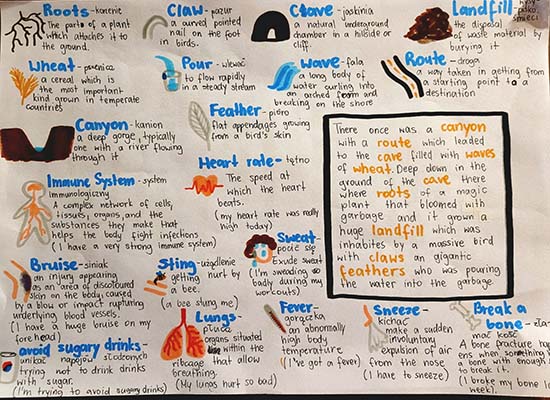 Roots- korzenie
The parts of a plant
which attaches it to
the ground.
Claw- pazur
a curved pointed
nail on the foot
in birds.
Cave- jaskinia
a natural underground
chamber in a hillside or
cliff.
Landfill-
wysy-
pisko
śmieci
the disposal
of waste material by
burying it
Wheat- pszenica
a cereal which is
the most important
kind grown in temperate
countries
Pour- wlewać
to flow rapidly
in a steady stream
Wave- fala
a long body of
water curling into
an arched form and
breaking on the shore
Route- droga
a way taken in getting from
a starting point to a
destination
Canyon- kanion
a deep gorge, typically
one with a river flowing
through it
Feather- pióro
flat appendages growing
from a bird's skin
Immune System- system
immunologiczny
A complex network of cells,
tissues, organs, and the
substances they make that
helps the body fight infections
(I have a very strong immune system)
Heart rate- tętno
The speed at
which the heart
beats.
(my heart rate was really
high today)
There once was a canyon
with a route which leaded
to the cave filled with waves
of wheat. Deep down in the
ground of the cave there
where roots of a magic
plant that bloomed with
garbage and it grown a
huge landfill which was
inhabites by a massive bird
with claws an gigantic
feathers who was pouring
the water into the garbage
Bruise- siniak
an injury appearing
as an area of discoloured
skin on the body caused
by a blow or impact rupturing
underlying blood vessels.
(I have a huge bruise on my
forehead)
Sting- użądlenie
getting hurt by
a bee.
(a bee stung me)
Sweat-
pocić się
Exude sweat
(I'm sweating so
badly during my
workouts)
avoid sugary drinks-
unikać napojów słodzonych
trying not to drink drinks
with sugar.
(I'm trying to avoid sugary drinks)
Lungs-
płuca
organs situated
within the
ribcage that allow
breathing.
(My lungs hurt so bad)
Fever-
gorączka
an abnormally
high body
temperature
(I've got a fever)
Sneeze-
kichać
make a sudden
involuntary
expulsion of air
from the nose
(I have to sneeze)
Break a
bone-
A bone fracture
when something
a bone with enough
to break it.
(I broke my bone
week).